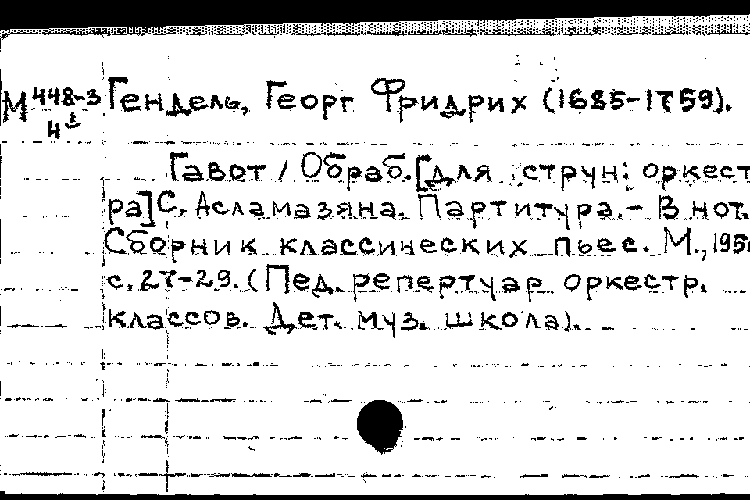 М 448-3 Гендель, Георг Фридрих (1685-1759).
4
Гавот / Обраб. [для струн. оркест
ра] С. Асламазяна. Партитура. - В нот.
Сборник классических пьес. М., 195
с. 27-29. (Пед. репертуар оркестр.
классов. Дет. муз. школа).